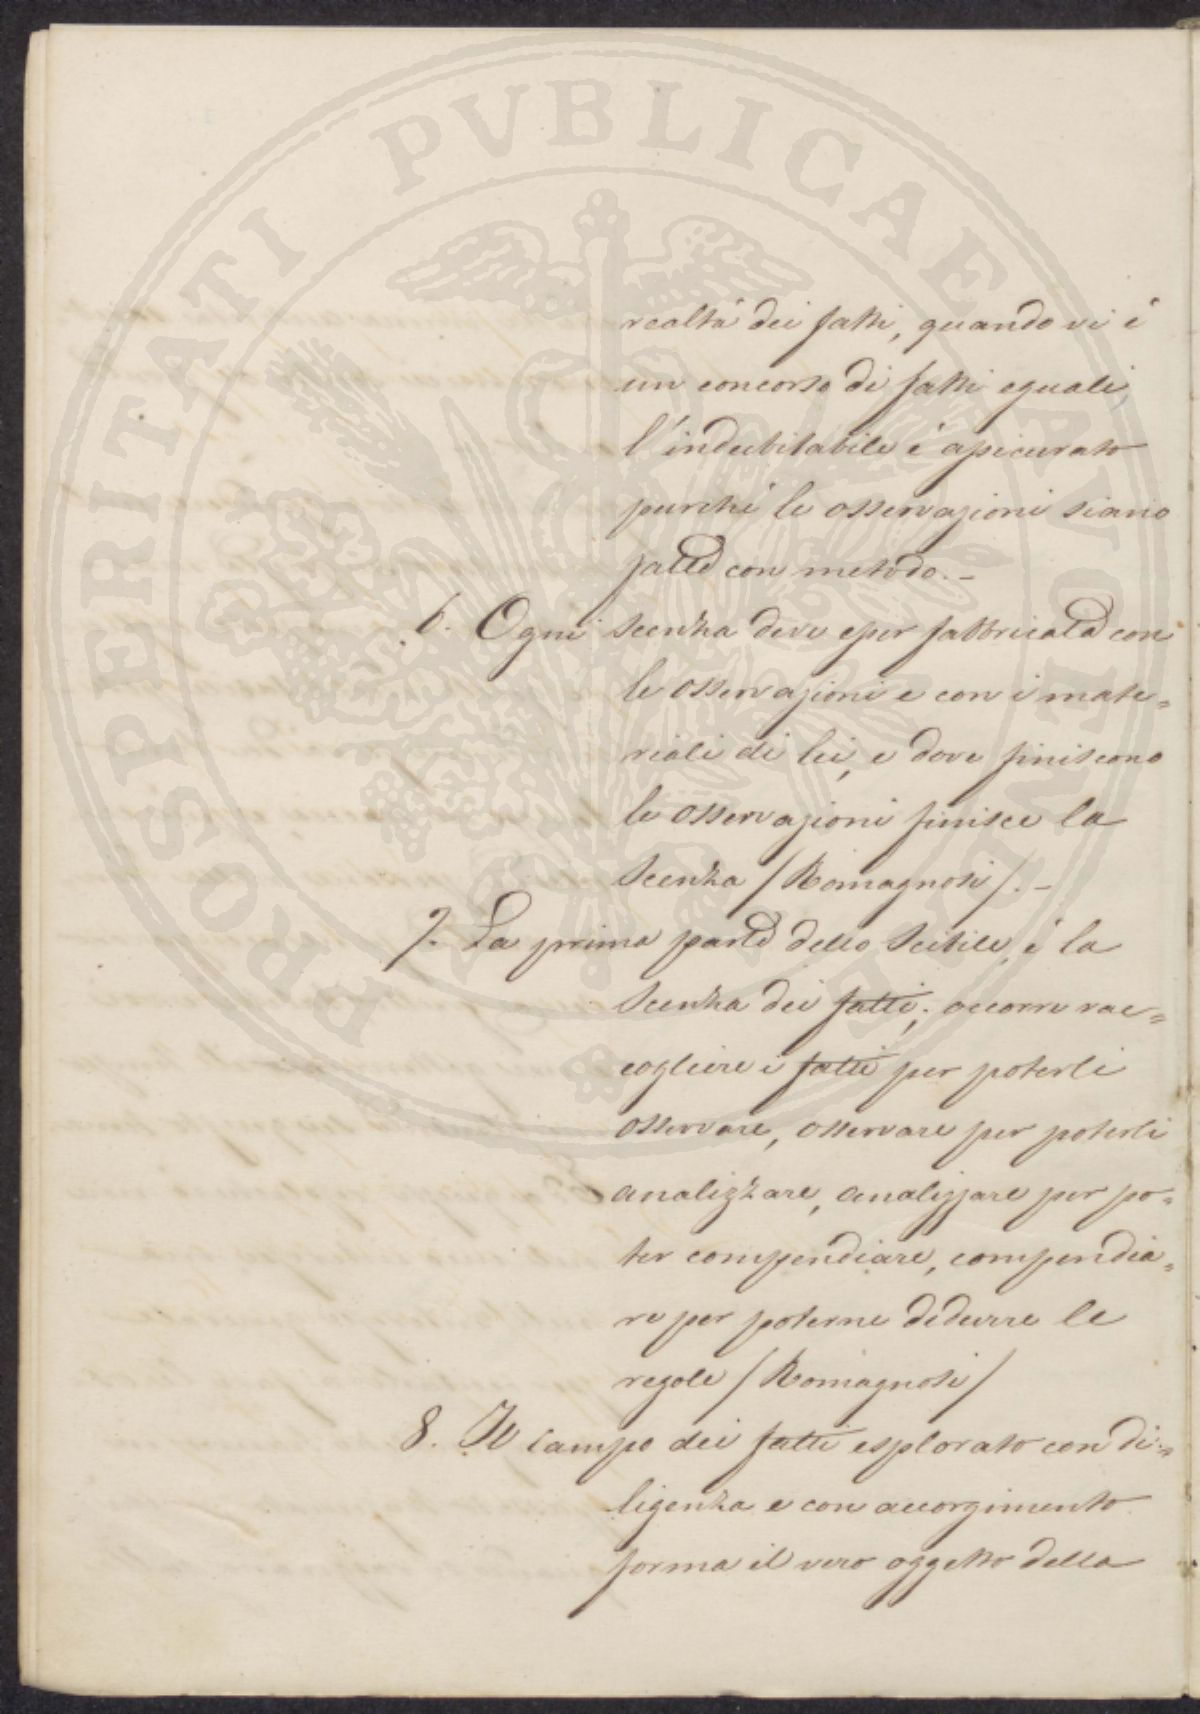 realtà dei fatti, quando vi è
un concorso di fatti eguali,
l'indubitabile è assicurato
purchè le osservazioni siano
fatte con metodo. –
6. Ogni scenza deve esser fabbricata con
le osservazioni e con i mate=
riali di lei, e dove finiscono
le osservazioni finisce la
scenza /Romagnosi/. –
7. La prima parte dello scibile, è la
scenza dei fatti; occorre rac=
cogliere i fatti per poterli
osservare, osservare per poterli
analizzare, analizzare per po=
ter compendiare, compendia=
re per poterne dedurre le
regole /Romagnosi/
8. Il campo dei fatti esplorato con di=
ligenza e con accorgimento
forma il vero oggetto della
PROSPERITATI PVBLICAE AVGENDAE